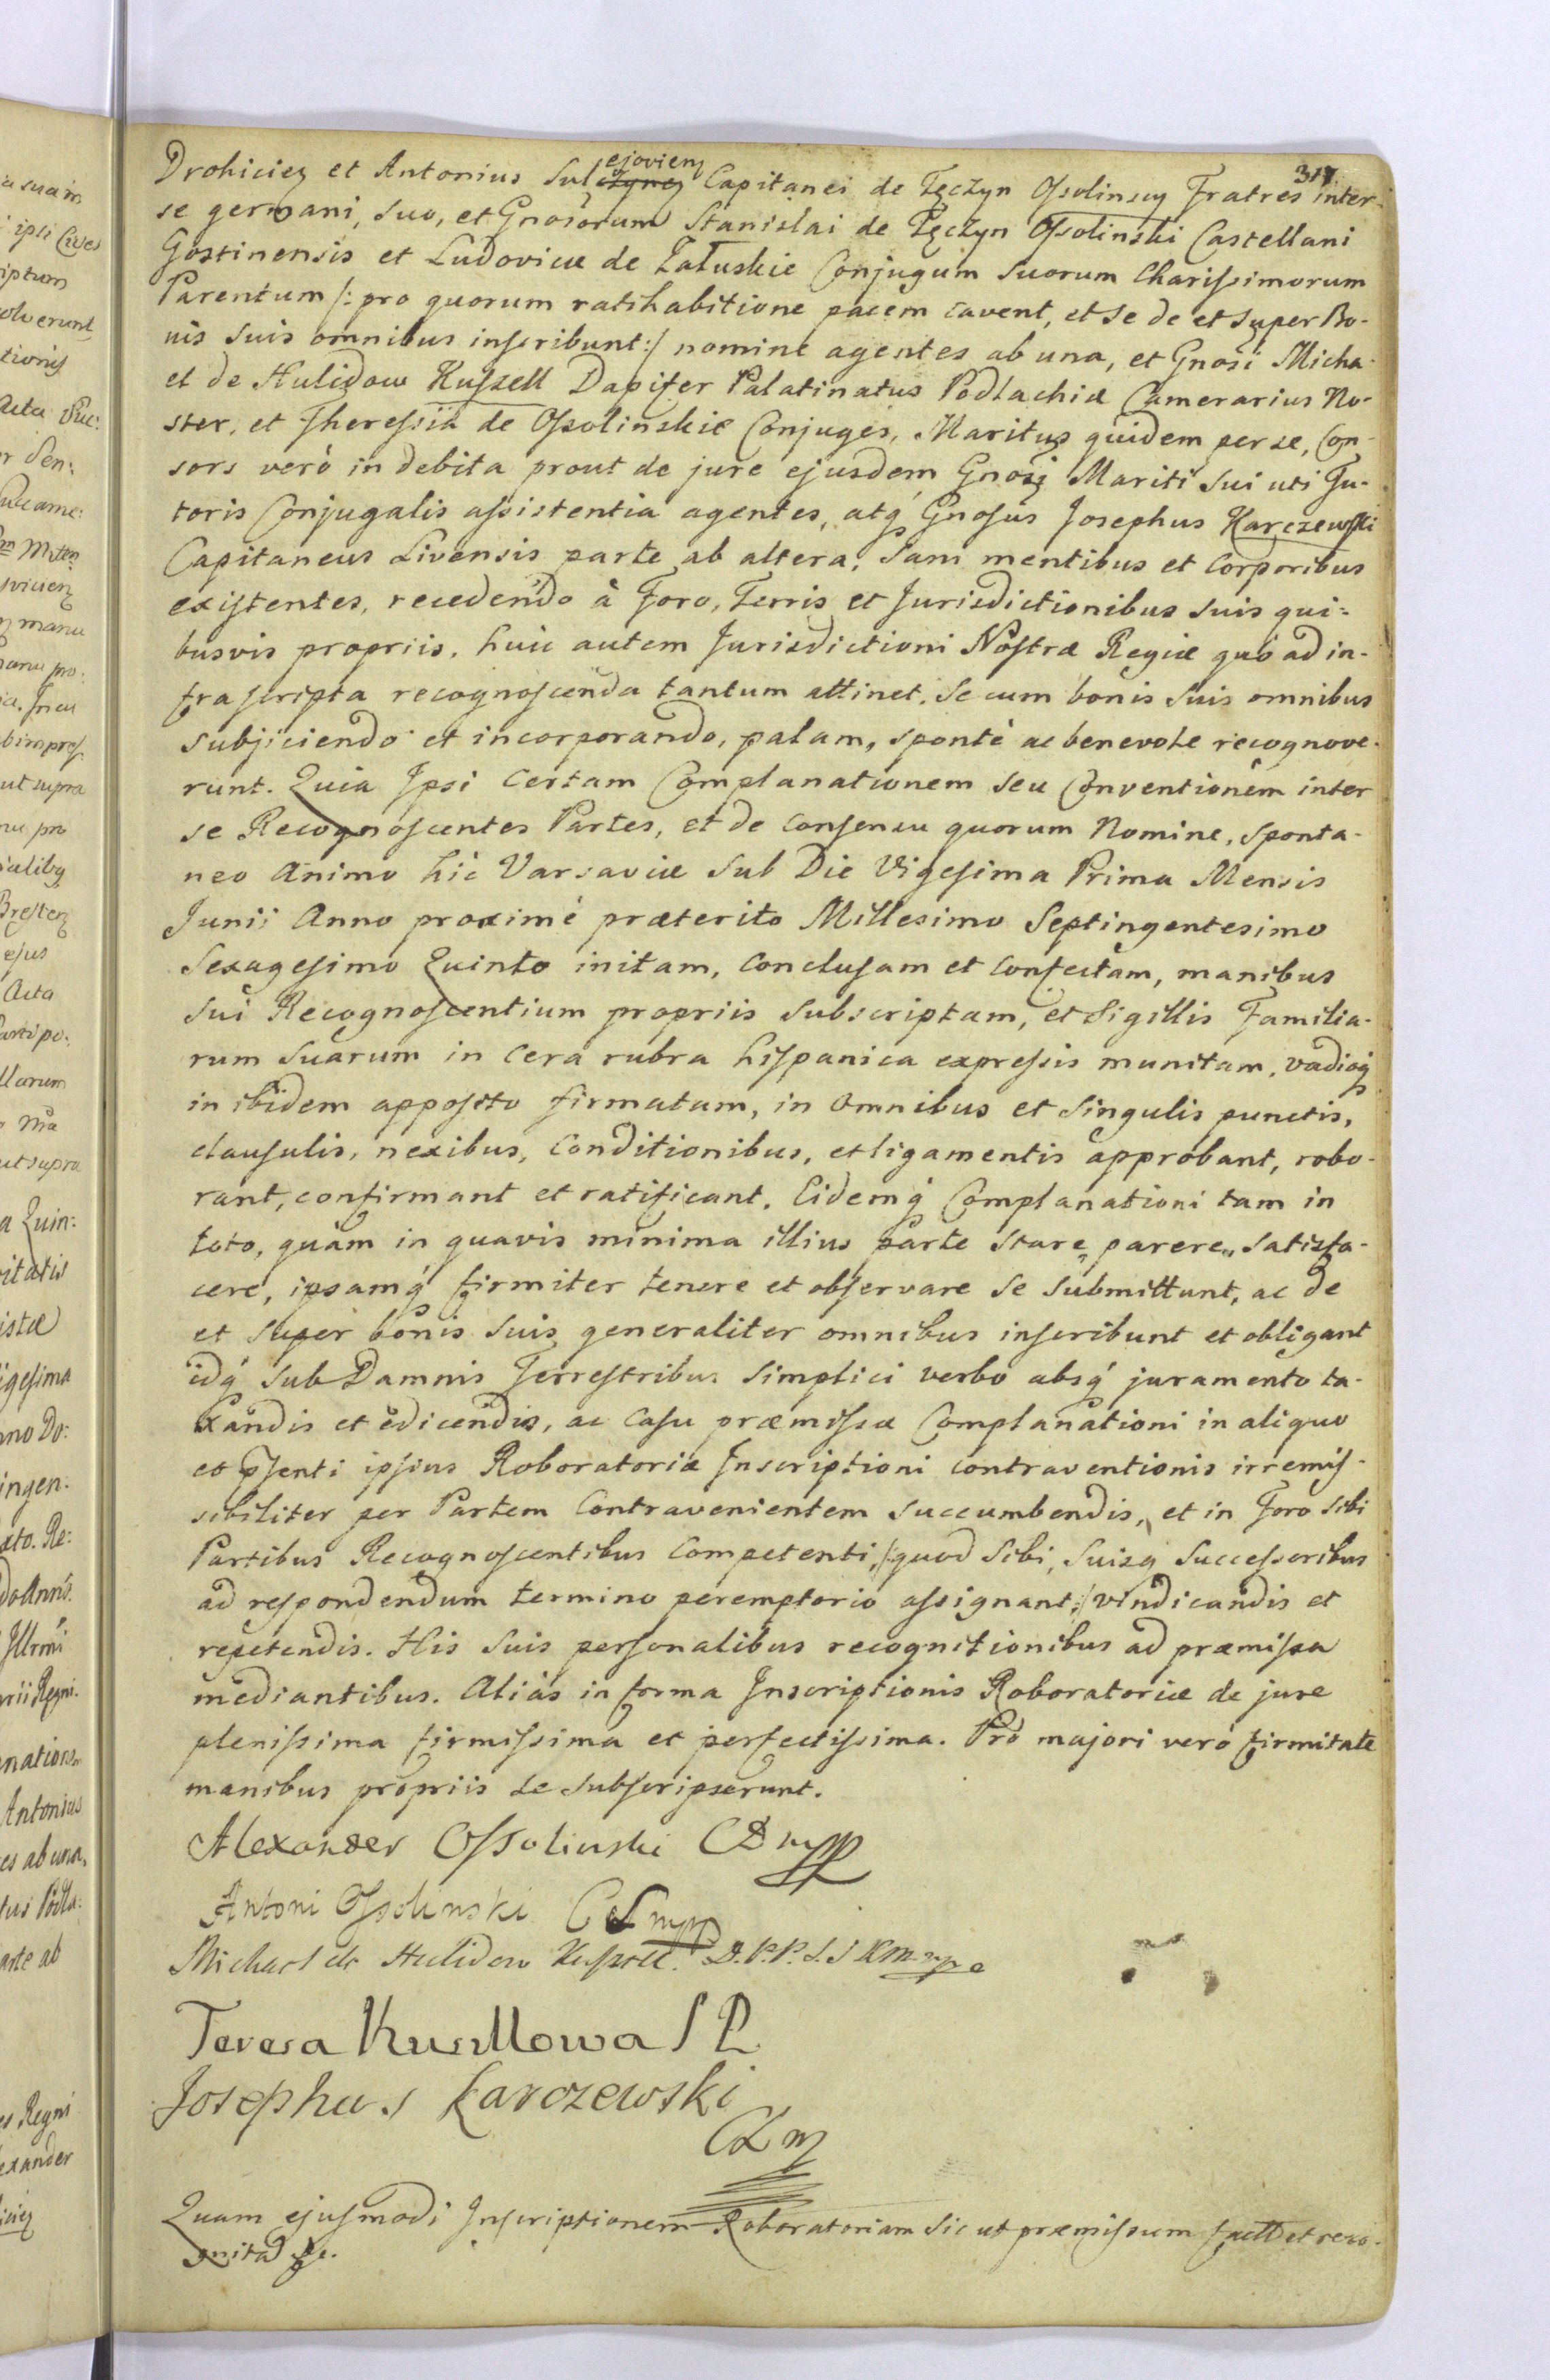 317.
Drohiciez et Antonius Sulejoviens Capitanei de Tęczyn Ossolinscy Fratres inter
se germani, suo, et Gnosorum Stanislai de Tęczyn Ossolinski Castellani
Gostinensis et Ludovicæ de Załuskie Conjugum Suorum Charissimorum
Parentum /: pro quorum ratihabitione pacem cavent, et se de et super Bo-
nis suis omnibus inscribunt :/ nomine agentes ab una, et Gnosi Micha-
el de Hulidow Kuszell Dapifer Palatinatus Podlachiæ Camerarius No-
ster, et Theressia de Ossolinskie Conjuges, Maritus quidem per se, Con-
sors verò in debita prout de jure ejusdem Gnosi Mariti sui uti Tu-
toris Conjugalis assistentia agentes, atq́ Gnosus Josephus Karczewski
Capitaneus Livensis parte ab altera, Sani mentibus et Corporibus
existentes, recedendo à Foro, Terris et Jurisdictionibus suis qui-
busvis propriis, huic autem Jurisdictioni Nostræ Regiæ quó ad in-
frascripta recognoscenda tantum attinet, se cum bonis suis omnibus
subjiciendo et incorporando, palam, sponté ac benevole recognove-
runt. Quia Ipsi Certam Complanationem seu Conventionem inter
se Recognoscentes Partes, et de Consensu quorum Nomine, sponta-
neo Animo hic Varsaviæ sub Die Vigesima Prima Mensis
Junii Anno proximé præterito Millesimo Septingentesimo
Sexagesimo Quinto initam, conclusam et confectam, manibus
sui Recognoscentium propriis subscriptam, et Sigillis Familia-
rum Suarum in Cera rubra hispanica expressis munitam, vadioq́
in ibidem apposito firmatam, in Omnibus et Singulis punctis,
clausulis, nexibus, Conditionibus, et ligamentis approbant, robo-
rant, confirmant et ratificant. Eidemq́ Complanationi tam in
toto, quàm in quavis minima illius parte stare, parere, satisfa-
cere, ipsamq́ firmiter tenere et observare se submittunt, ac de
et super bonis suis generaliter omnibus inscribunt et obligant
idq́ sub Damnis Terrestribus simplici verbo absq́ juramento ta-
xandis et edicendis, ac Casu præmissæ Complanationi in aliquo
et psenti ipsius Roboratoriæ Inscriptioni contraventionis irremis-
sibiliter per Partem Contravenientem succumbendis, et in Foro sibi
Partibus Recognoscentibus Competenti, /: quod sibi, suisq́ Successoribus
ad respondendum termino peremptorio assignant :/ vindicandis et
repetendis. His suis personalibus recognitionibus ad præmissa
mediantibus. Aliàs in forma Inscriptionis Roboratoriæ de jure
plenissima firmissima et perfectissima. Pro majori veró firmitate
manibus propriis se subscripserunt.
Alexander Ossolinski CD mpp
Antoni Ossolinski CS mpp
Michael de Hulidow Kuszell. D.P.P. S.J K M mpp
Teresa Kuszllowa S P
Josephus Karczewski
CL m
Quam ejusmodi Inscriptionem Roboratoriam sic ut præmissum factã et reco-
gnitã